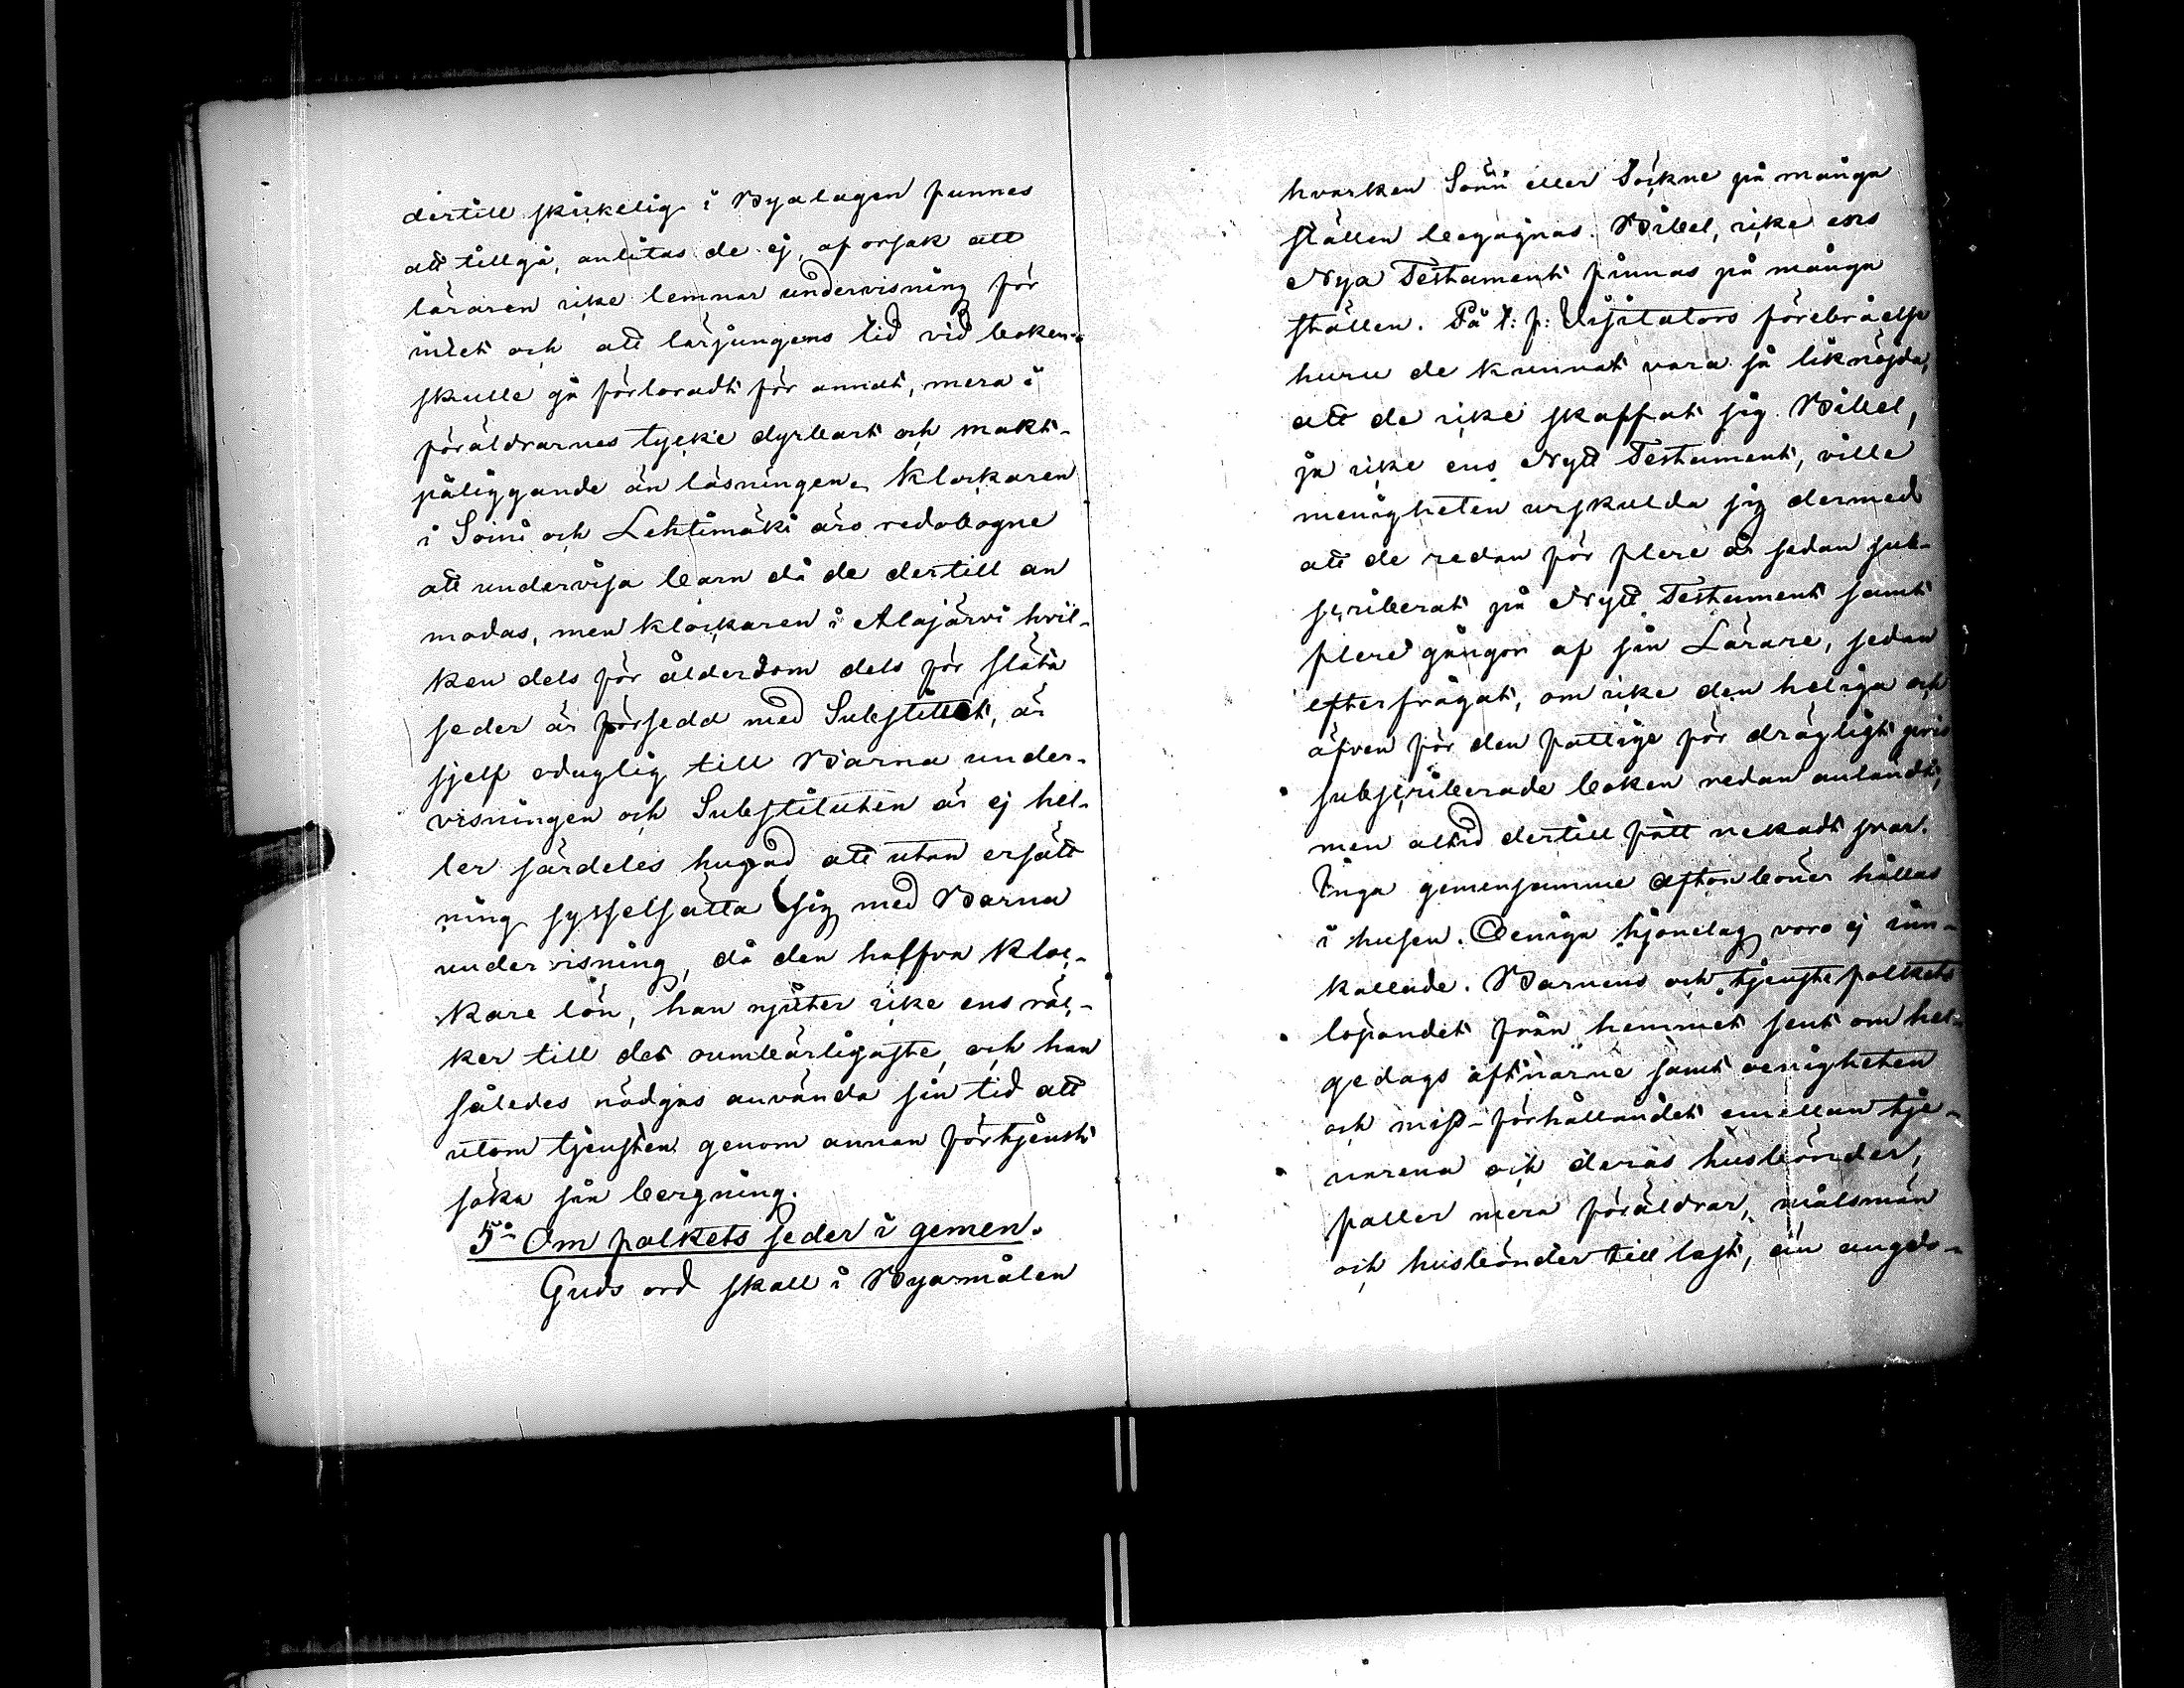 dertill skickelige i Byalagen funnes
att tillgå, anlitas de ej, af orsak att
läraren icke lemnar undervisning för
intet och att lärjungens tid vid boken
skulle gå förloradt för annat, mera i
föräldrarnes tycke dyrbart och makt-
påliggande än läsningen. Klockaren
i Soini och Lehtimäki äro redobogne
att undervisa barn då de dertill an
modas, men klockaren i Alajärvi hvil-
ken dels för ålderdom dels för släta
seder är försedd med Substitut, är
sjelf oduglig till Barna under-
visningen och Substituten är ej hel-
ler särdeles hugad att utan ersätt
ning sysselsätta sig med Barna
undervisning, då den halfva kloc-
kare lön, han njuter icke ens räc-
ker till det oumbärligaste, och han
således nödgas använda sin tid att
utom tjensten genom annan förtjenst
söka sin bergning.
5º Om folkets seder i gemen.
Guds ord skall i Byarmålen
hvarken Sönn eller Söckne på många
ställen begagnas. Bibel, icke ens
Nya Testament finnas på många
ställen. På t: p: Visitators förebråelse
huru de kunnat vara så liknöjda,
att de icke skaffat sig Bibel,
ja icke ens Nytt Testament, ville
menigheten urskulda sig dermed
att de redan för flere år sedan sub-
scriberat på Nytt Testament samt
flere gångor af sin Lärare, sedan
efterfrågat, om icke den heliga och
äfven för den fattige för drägligt pris
subscriberade boken redan anländt,
men altid dertill fått nekadt svar.
Inga gemensamme aftonböner hållas
i husen. Oeniga hjonelag voro ej inn-
kallade. Barnens och tjenstefolkets
löpandet från hemmet sent om hel-
gedags aftnarne samt oenigheten
och miss-förhållandet emellan tje-
narena och deras husbönder,
faller mera föräldrar, målsmän
och husbönder till last, än ungdo-